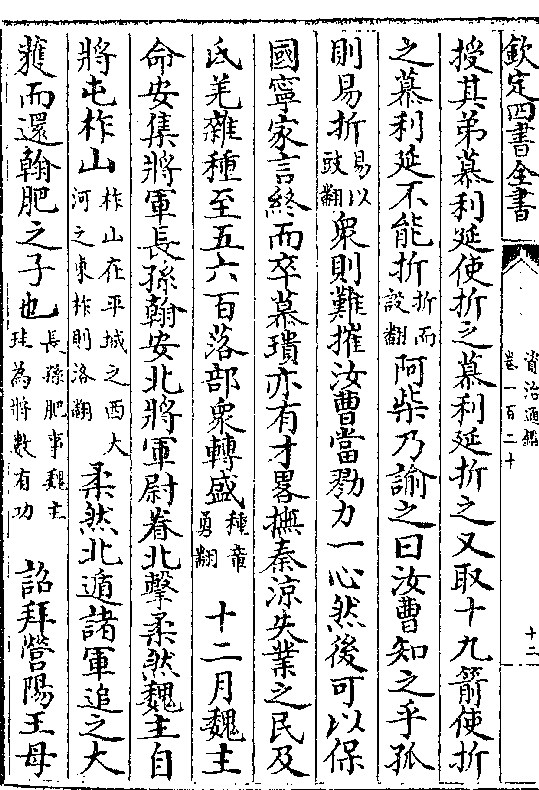 欽定四庫全書
資治通鑑
卷一百二十
十二
授其弟慕利延使折之慕利延折之又取十九箭使折
之慕利延不能折折而設翻阿柴乃諭之曰汝曹知之乎孤
則易折易以豉翻衆則難摧汝曹當勠力一心然後可以保
國寧家言終而卒慕璝亦有才畧撫秦涼失業之民及
氐羌雜種至五六百落部衆轉盛種章勇翻十二月魏主
命安集將軍長孫翰安北將軍尉眷北擊柔然魏主自
將屯柞山柞山在平城之西大河之東柞則洛翻柔然北遁諸軍追之大
獲而還翰肥之子也長孫肥事魏主珪為將數有功詔拜營陽王母